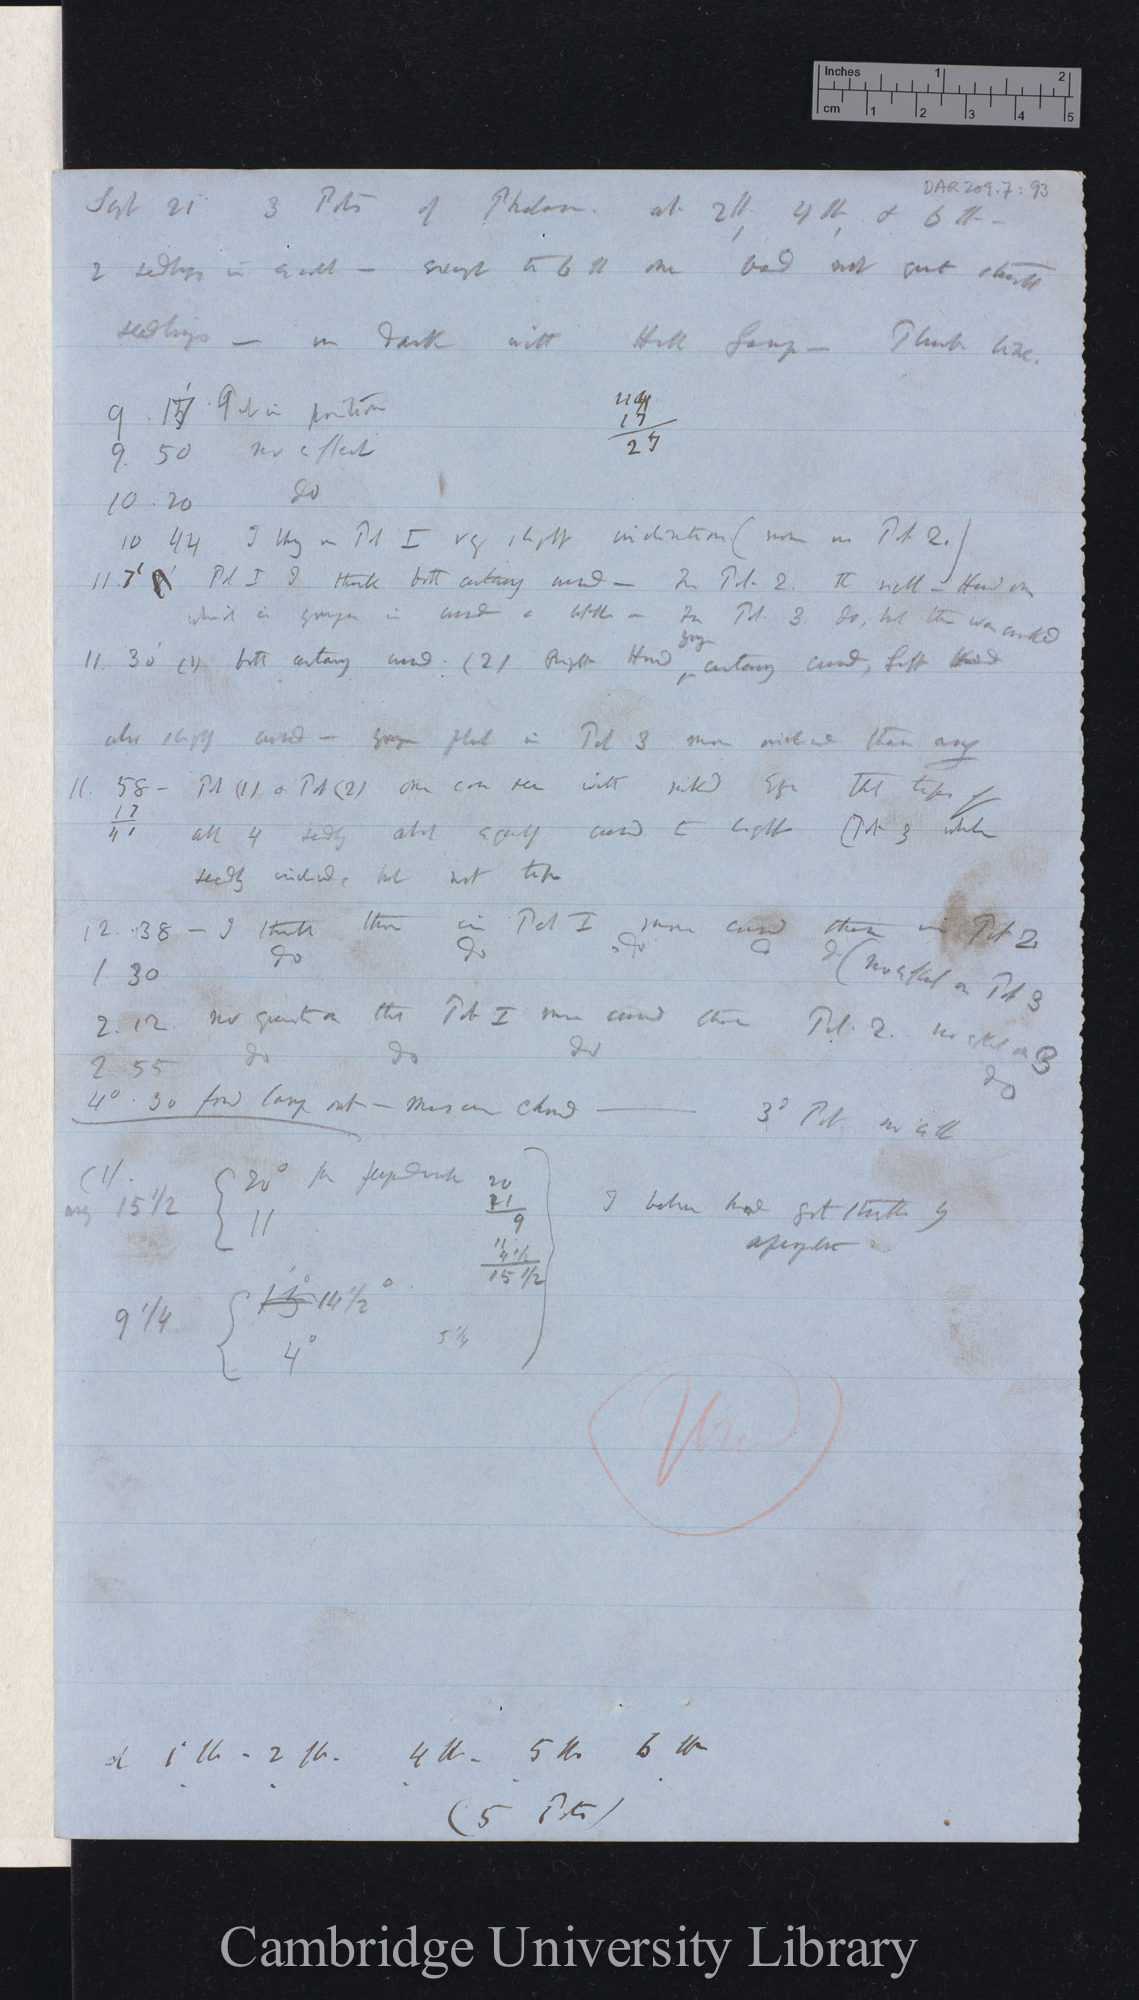 Inches 1 2
cm 1 2 3 4 5
DAR 209.7:93
Sept 21 3 Pots of Phalaris. at 2 ft, 4 ft, & 6 ft -
2 seedlings in each - except the 6 ft one had not got
seedlings - in dark with Lamp -
9 . 17' Put in position
44
17
27
9. 50 no effect
10 . 20 do
10 44 I think in Pot I very slight inclination (none in Pot 2.)
11. 7' Pot I I think both certainly curved - In Pot 2. the right-Hand one
which is younger is curved a little - In Pot. 3. do, but this was
11. 30' (1) both certainly curved. (2) Right Hand certainly curved, Left
young
also slightly curved - younger plant in Pot 3 more inclined than any
11. 58 - Pot (1) & Pot (2) one can see with naked eye that tips of
17
41
all 4 seedlings about equally curved to light (Pot 3 whole
seedling inclined, but not tip
12. 38 - I think those in Pot I more curved than in Pot 2
1 30 do do do do do (no effect on Pot 3
2. 12 no question that Pot I more curved than Pot. 2. no effect on 3
2 55 do do do do
4° . 30 found lamp out - 3° Pot
(1)
15 1/2 { 20° fr perpendicular
11
20
11
9
11
4 1/2
15 1/2
I believe had got
9 1/4 { 14 1/2°
4°
5 1/4
Used
at 1 ft - 2 ft. 4 ft - 5 ft 6 ft
(5 Pots)
Cambridge University Library